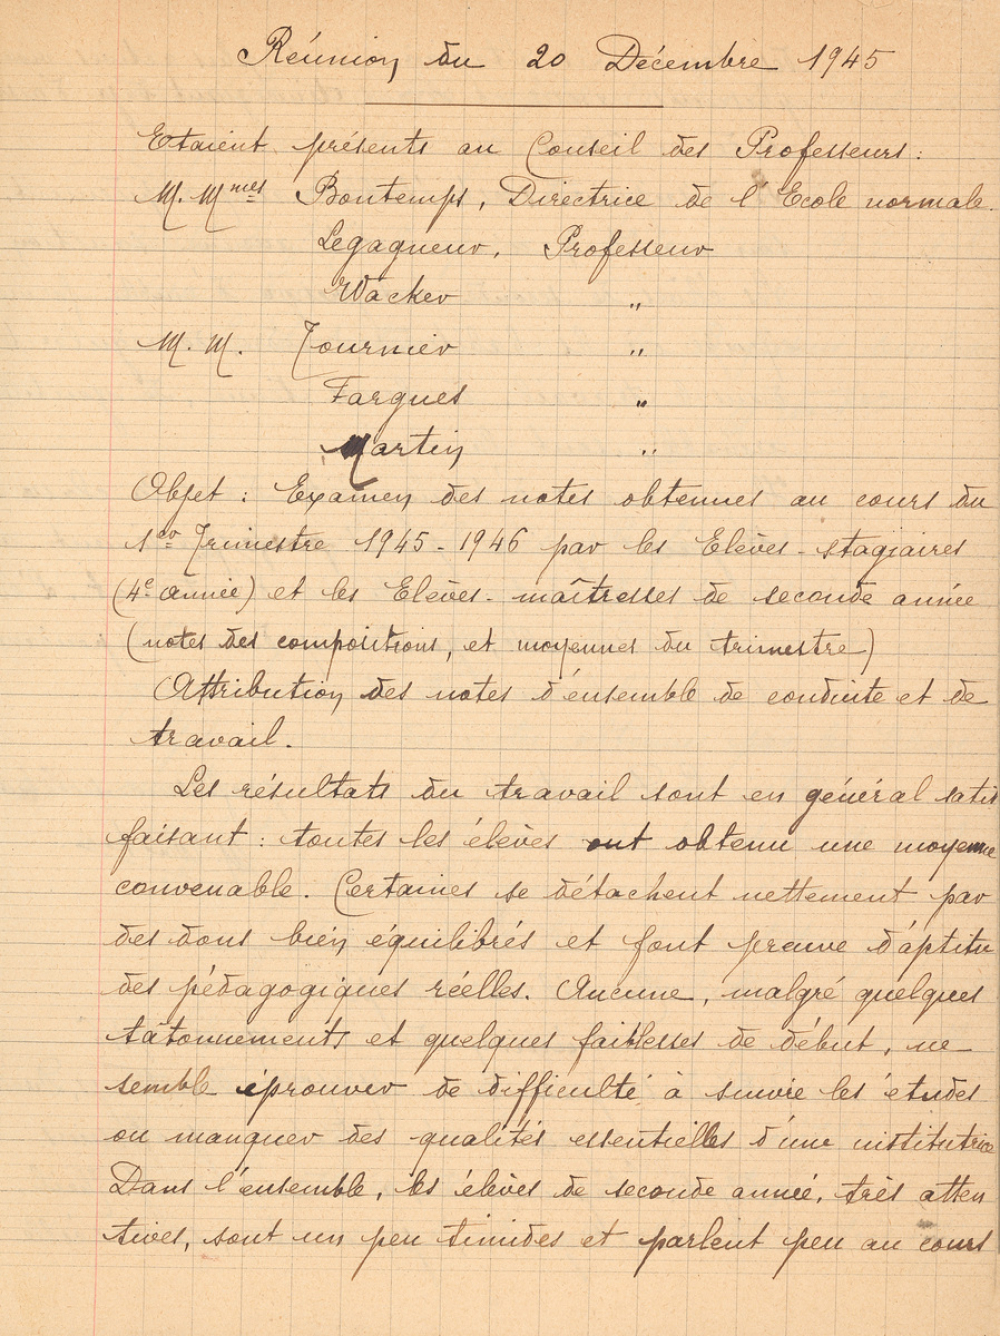 Réunion du 20 Décembre 1945
Etaient présents au Conseil des Professeurs :
M. Mmes Bontemps, Directrice de l'Ecole normale.
Legagneur, Professeur
Wacker "
M. M. Tournier "
Fargues "
Martin "
Objet : Examen des notes obtenues au cours du
1er Trimestre 1945-1946 par les Elèves-stagiaires
(4e année) et les Elèves-maîtresses de seconde année
(notes des compositions, et moyennes du trimestre)
Attribution des notes d'ensemble de conduite et de
travail.
Les résultats du travail sont en général satis
faisant : toutes les élèves ont obtenu une moyenne
convenable. Certaines se détachent nettement par
des dons bien équilibrés et font preuve d'aptitu
des pédagogiques réelles. Aucune, malgré quelques
tâtonnements et quelques faiblesses de début, ne
semble éprouver de difficulté à suivre les études
ou manquer des qualités essentielles d'une institutrice
Dans l'ensemble, les élèves de seconde année, très atten
tives, sont un peu timides et parlent peu au cours